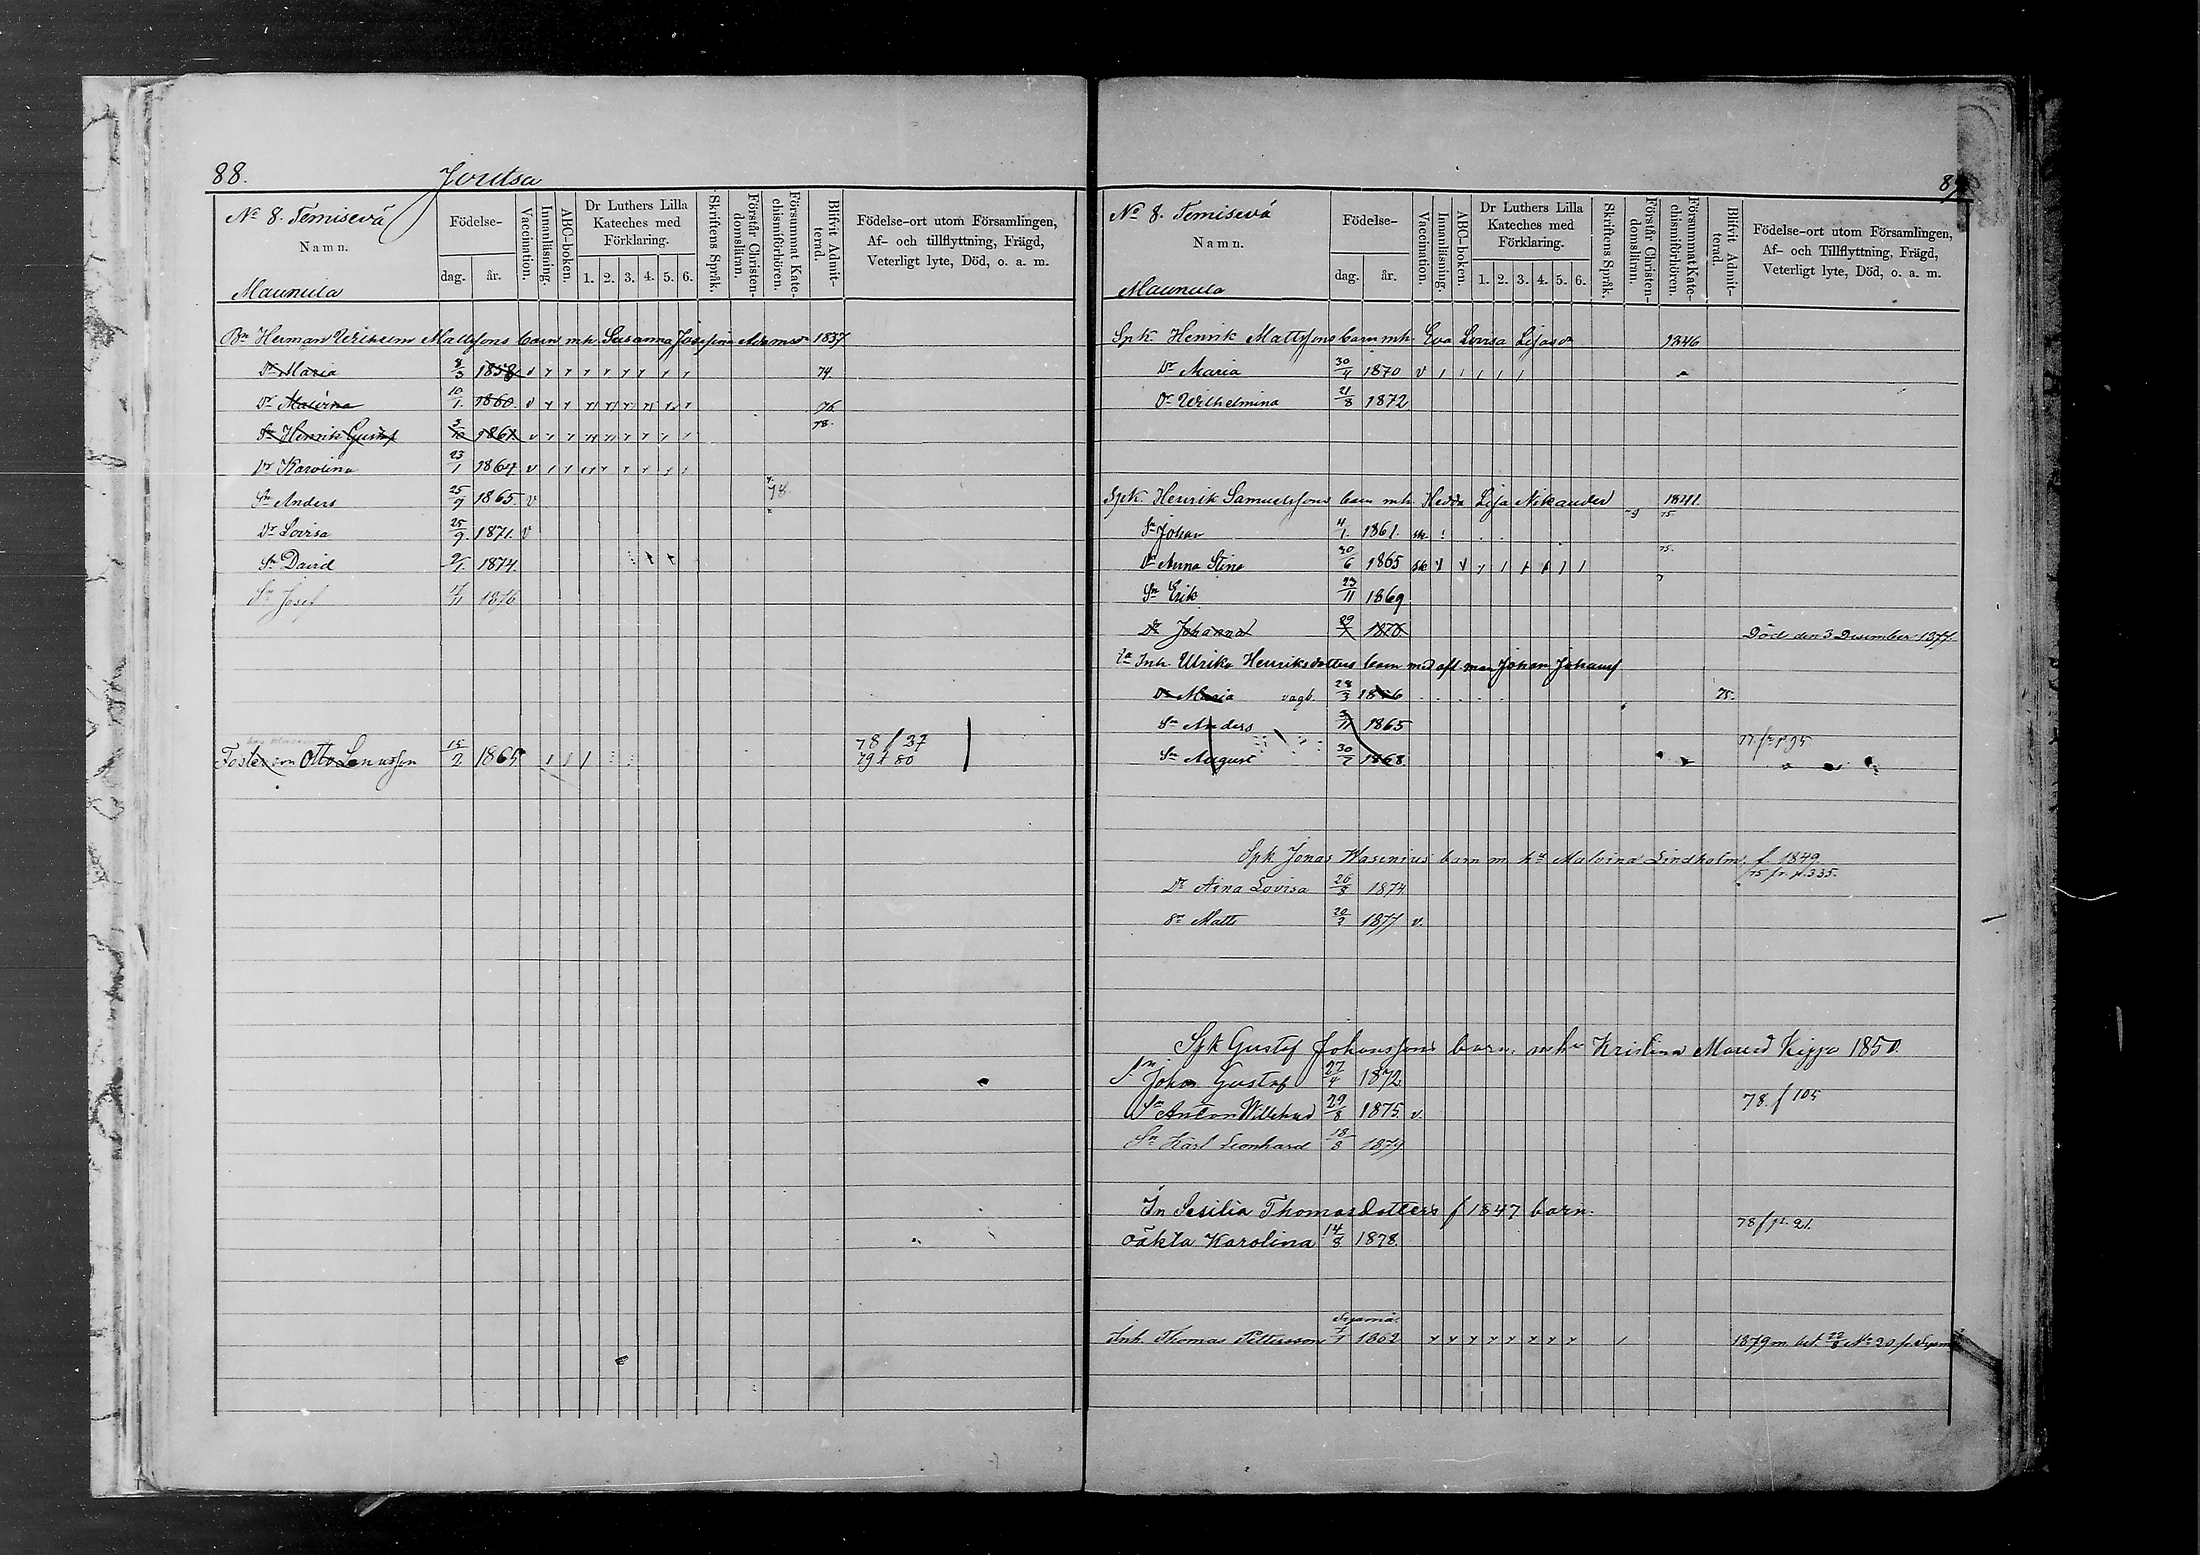 88.
Joutsa
No 8. Temisevä
Namn.
Maunula
Födelse-
dag.
år.
Vaccination.
Innanläsning.
ABC-boken.
Dr Luthers Lilla
Kateches med
Förklaring.
1. 2. 3. 4. 5. 6.
Skriftens Språk.
Förstår Christen-
domsläran.
Försummat Kate-
chismiförhören.
Blifvit Admit-
terad.
Födelse-ort utom Församlingen,
Af- och tillflyttning, Frägd,
Veterligt lyte, Död, o. a. m.
Bn Herman Wilhelm Mattssons barn mh. Susanna Josefina Adamsdr 1837
Dr Maria 8/3 1858 v 74.
Dr Malvina 10/1. 1860. v 76.
Sn Henrik Gustaf 3/10 1861 v 78.
Dr Karolina 23/1 1864 v
Sn Anders 25/9 1865. v 78.
Dr Lovisa 25/9. 1871. v
Sn David 2/1. 1874.
Sn Josef 1876
Fosterson Otto Lenusson 15/2 1865
78 f 37
79 t 80
89
No 8. Temisevä
Namn.
Maunula
Födelse-
dag.
år.
Vaccination.
Innanläsning.
ABC-boken.
Dr Luthers Lilla
Kateches med
Förklaring.
1. 2. 3. 4. 5. 6.
Skriftens Språk.
Förstår Christen-
domsläran.
Försummat Kate-
chismiförhören.
Blifvit Admit-
terad.
Födelse-ort utom Församlingen,
Af- och Tillflyttning, Frägd,
Veterligt lyte, Död, o. a. m.
Spk. Henrik Mattssons barn mh. Eva Lovisa Lisasdr 1846
Dr Maria 30/4 1870 v
Dr Wilhelmina 21/8 1872
Spk. Henrik Samuelssons barn mh. Hedda Lisa Nikander 1841.
Sn Johan 4/1. 1861. sk. 75
Dr Anna Stina 30/6 1865 sk 75.
Sn Erik 23/11 1869
Dr Johanna 29/ 1870 Död den 3 Desember 1877
Inh. Ulrika Henriksdotters barn med afl. man Johan Johanss
Dr Maria vagb. 28/3 1856 75.
Sn Anders 3/11 1865
Sn August 30/7 1868. 77 fr p 95
Spk Jonas Wasenius barn m. hu Malvina Lindholm f. 1849
75 fr. p. 335.
Dr Aina Lovisa 26/8 1874
Sn Matts 20/2 1877 v.
Spk Gustaf Johanssons barn. mhu Kristina Maria Kippo 1850.
Sn Johan Gustaf 27/4 1872
Sn Anton Willehad 29/8 1875. v. 78. f 105
Sn Karl Leonhard 18/8 1879
In Sesilia Thomasdotters f 1847 barn.
78 f p. 21.
oäkta Karolina 14/8 1878.
Sysmä.
Inh. Thomas Pettersson 1/1 1862 1879 m. bet. 22/8 No 20 fr. Sysm